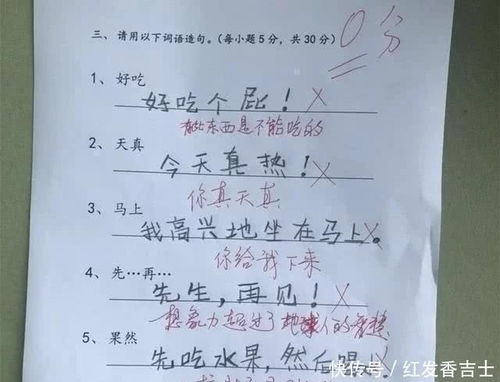 三、请用以下词语造句。(每小题5分，共30分)
0分
1、好吃
好吃个屁！
有些东西是不能吃的
2、天真
今天真热！
你真天真
3、马上
我高兴地坐在马上。
你给我下来
4、先…再…
先生，再见！
想象力超过了地球人的智慧
5、果然
先吃水果，然后喝
快传号／红发香吉士